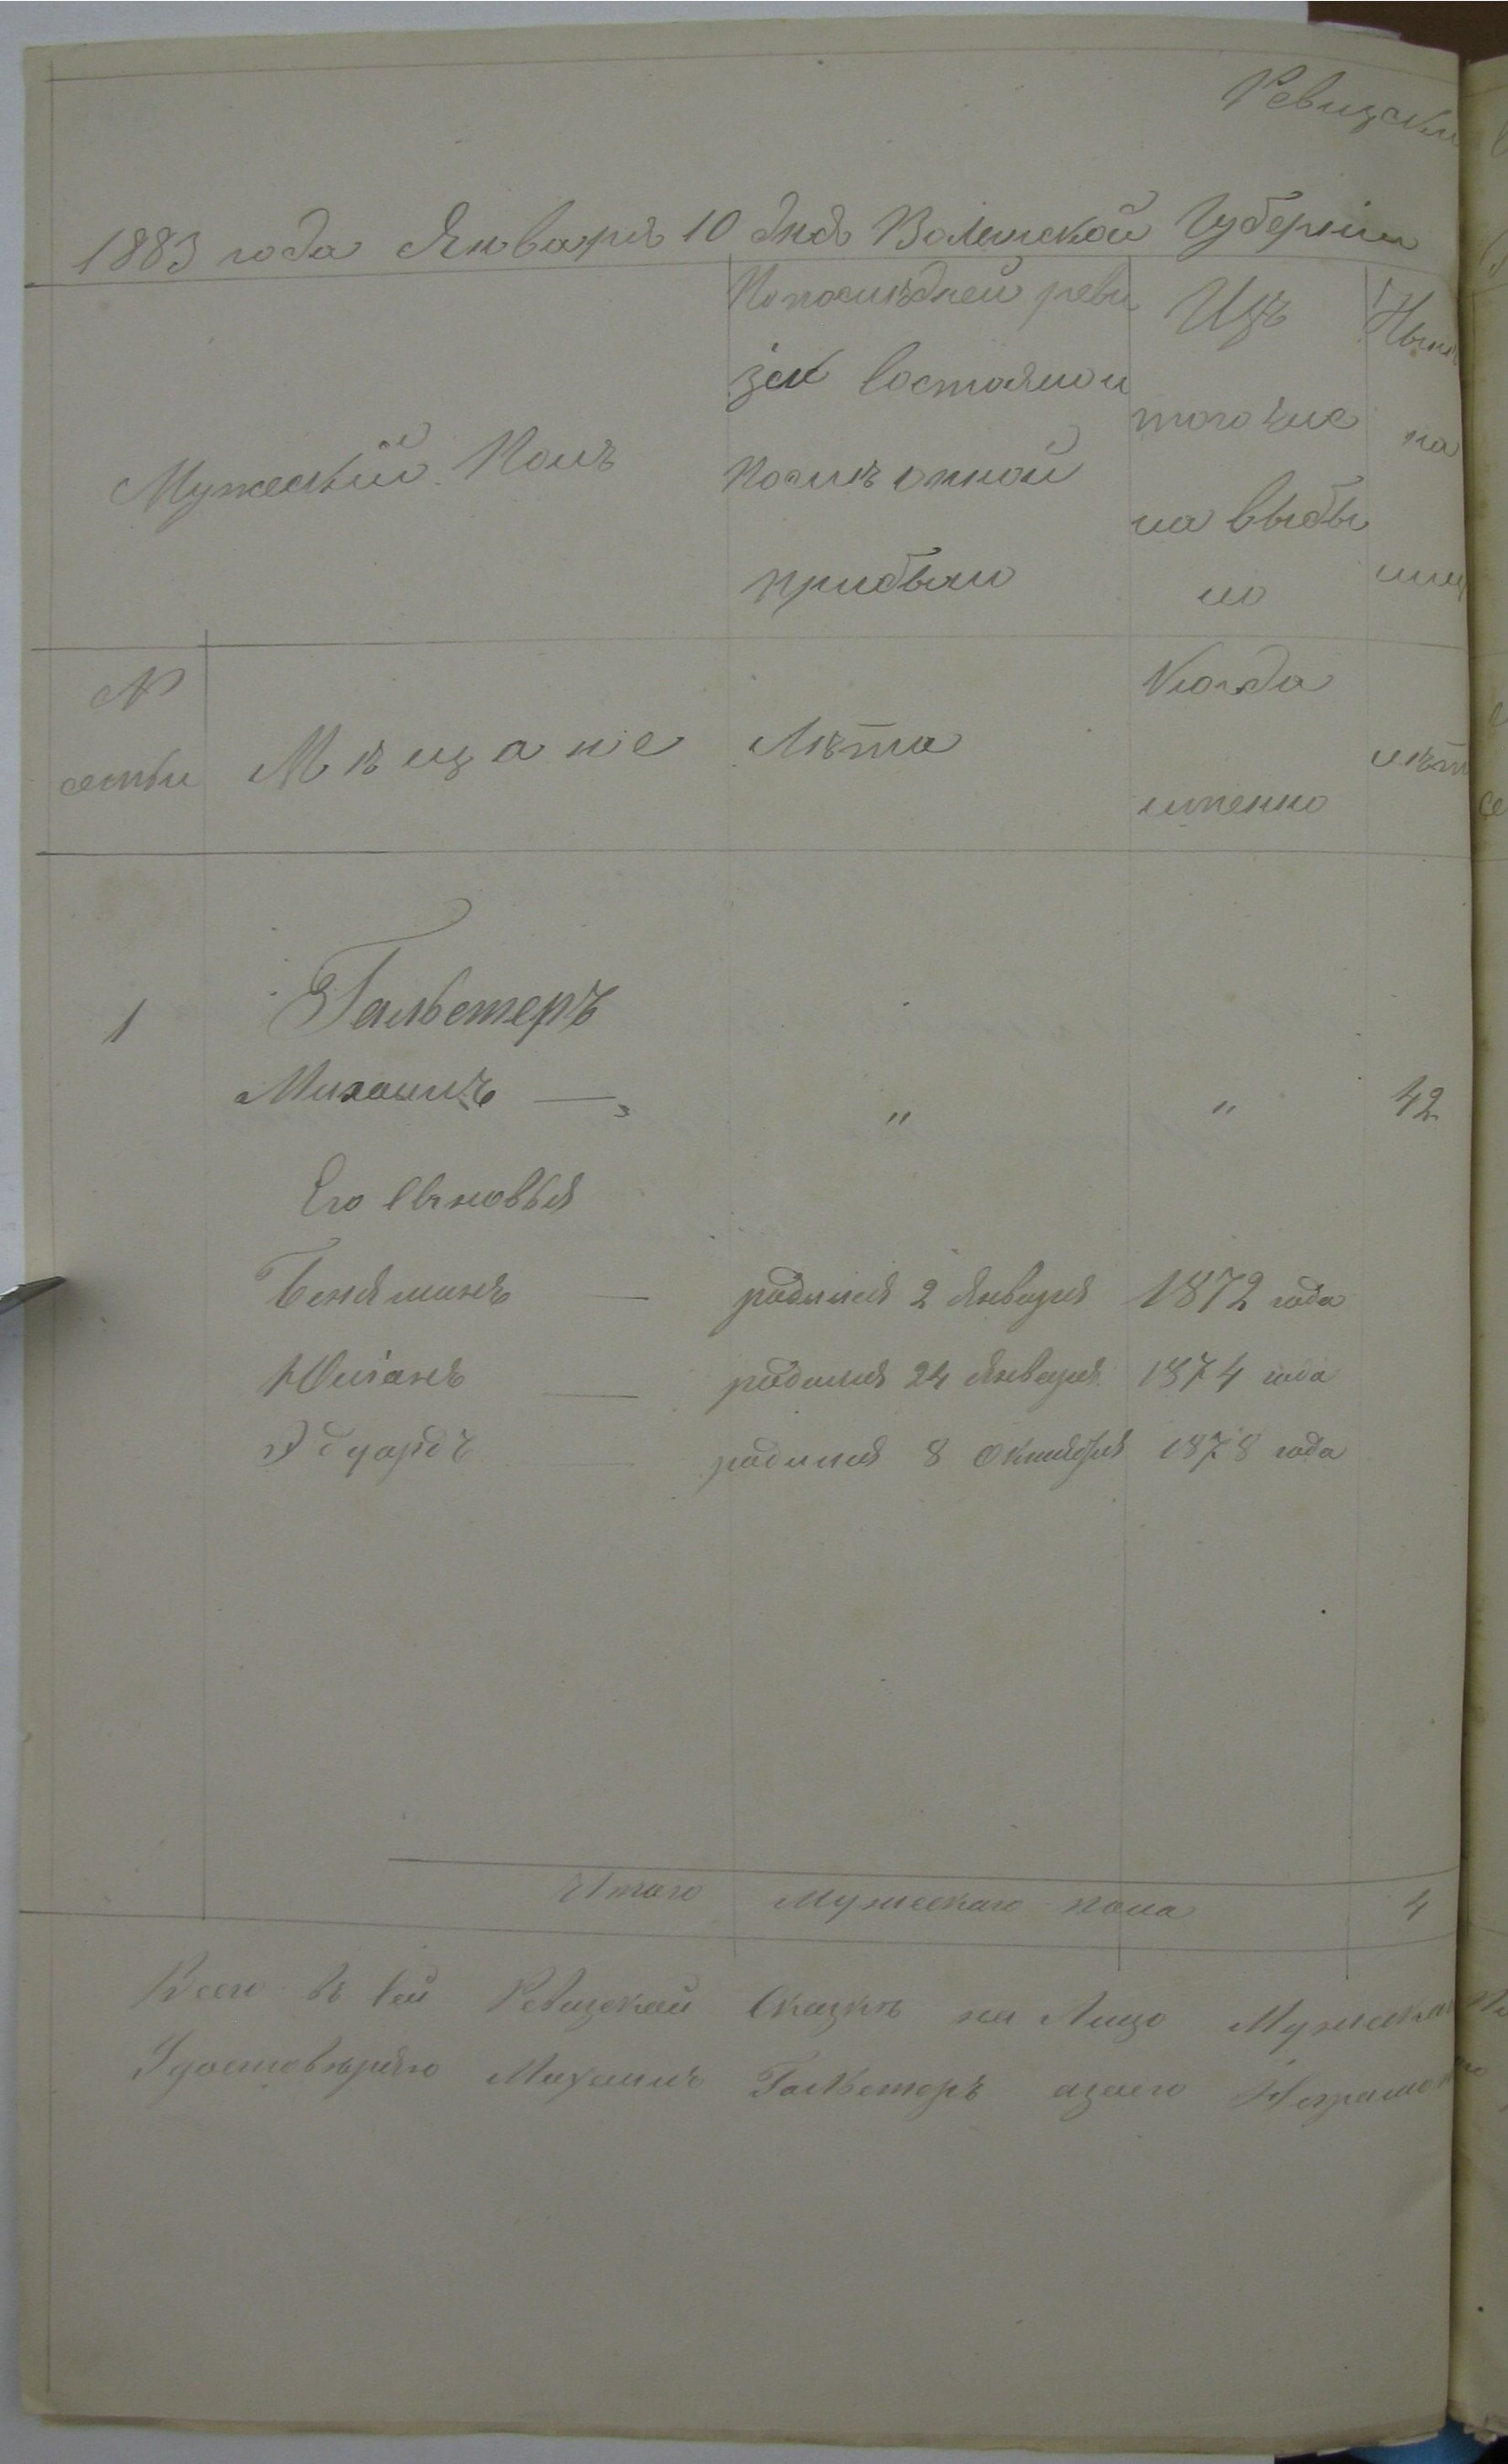 Ревизская
1883 года Января 10 дня Волынской Губерніи
Мужескій Полъ
По послѣдней реви
зіи состояло и
послѣ оной
прибыло
Изъ
того чис
ла выбы
ло
Нынѣ
на
лиц
№
семьи
Мѣщане
Лѣта
Когда
именно
лѣт
1
Гальстеръ
Михаилъ — " " 42
Его Сыновья
Беняминъ — родился 2 Января 1872 года
Юліанъ — родился 24 Января 1874 года
Эдуардъ — родился 8 Октября 1878 года
Итого Мужескаго пола 4
Всего въ сей Ревизской Сказкѣ на Лицо Мужеска
Удостовѣряю Михаилъ Гальстеръ а за его Неграмот